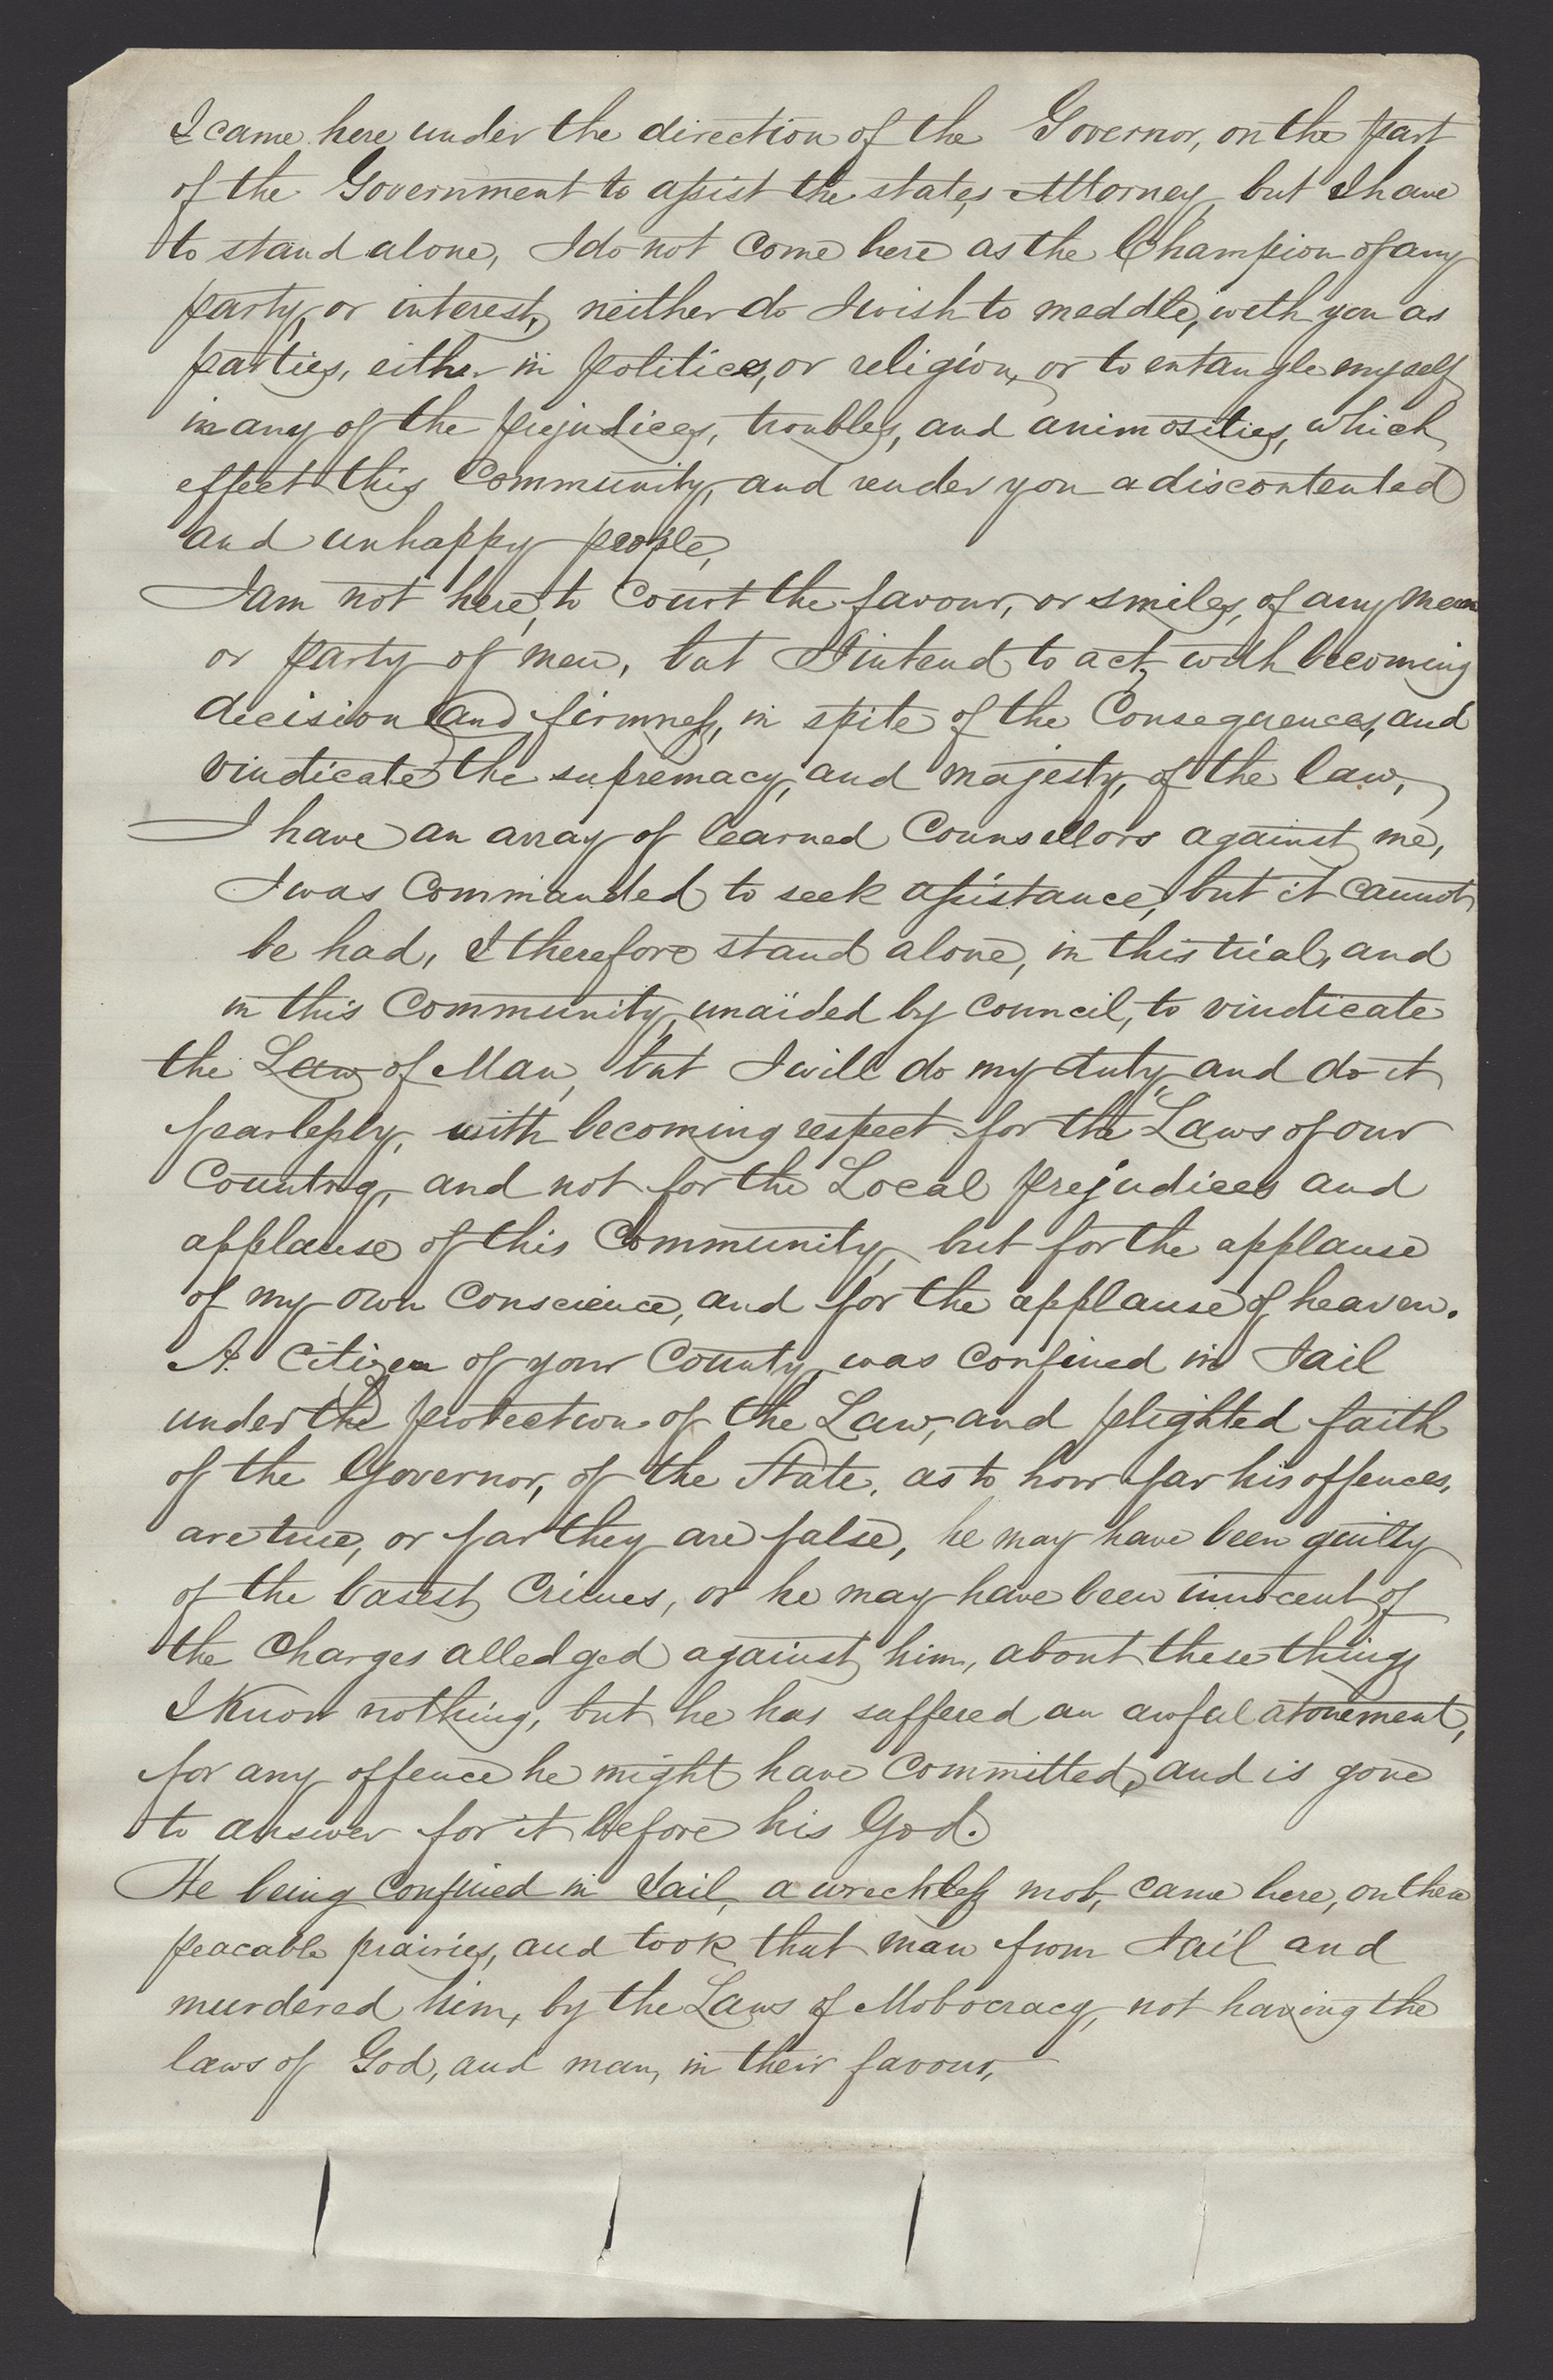 I came here under the direction of the Governor, on the part
of the Government to assist the states Attorney, but I have
to stand alone, I do not Come here as the Champion of any
party, or interest, neither do I wish to meddle, with you as
parties, either in politics, or religion, or to entangle myself
in any of the prejudices, troubles, and animosities, which
effect this Community, and render you a discontented
and unhappy people,
I am not here, to Court the favour, or smiles, of any man
or party of men, but I intend to act, with becoming
decision and firmness, in spite of the Consequences, and
vindicate the supremacy, and majesty, of the law,
I have an array of learned Counsellors against me,
I was Commanded to seek assistance, but it cannot
be had, I therefore stand alone, in this trial, and
in this Community, unaided by Council, to vindicate
the Law of Man, but I will do my duty, and do it
fearlessly, with becoming respect for the Laws of our
Country, and not for the Local prejudices and
applause of this Community, but for the applause
of my own Conscience, and for the applause of heaven.
A Citizen of your County, was Confined in Jail
under the protection of the Law, and plighted faith
of the Governor, of the State, as to how far his offences,
are true, or far they are false, he may have been guilty
of the basest Crimes, or he may have been innocent of
the Charges alledged against him, about these things
I Know nothing, but he has suffered an awful atonement,
for any offence he might have Committed, and is gone
to answer for it before his God.
He being Confined in Jail, a wreckless mob, came here, on these
peacable prairies, and took that man from Jail and
murdered him, by the Laws of Mobocracy, not having the
laws of God, and man, in their favour,